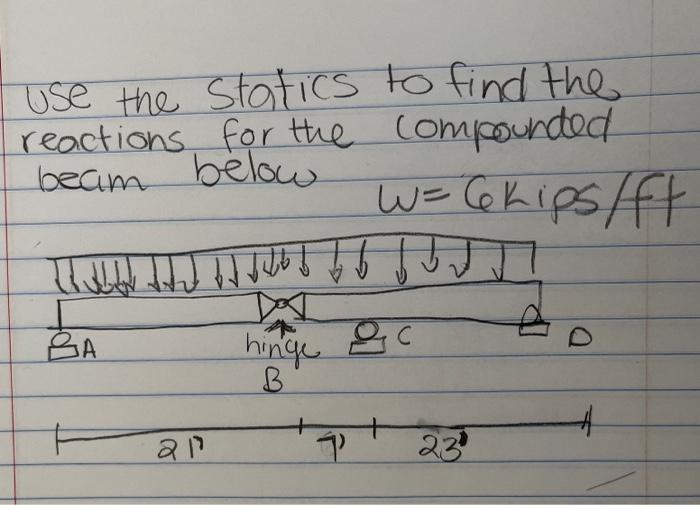 Use the Statics to find the
reactions for the Compounded
beam below
W= 6Kips/ft
A
hinge
B
C
D
21'
7'
23'